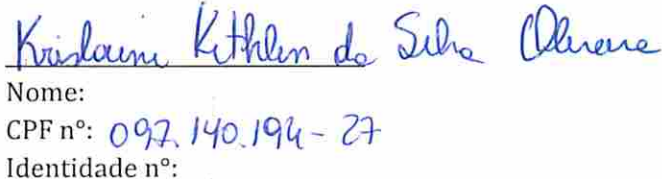 Krislaine Kethlen da Silva Oliveira
Nome:
CPF nº: 097.140.194-27
Identidade nº: